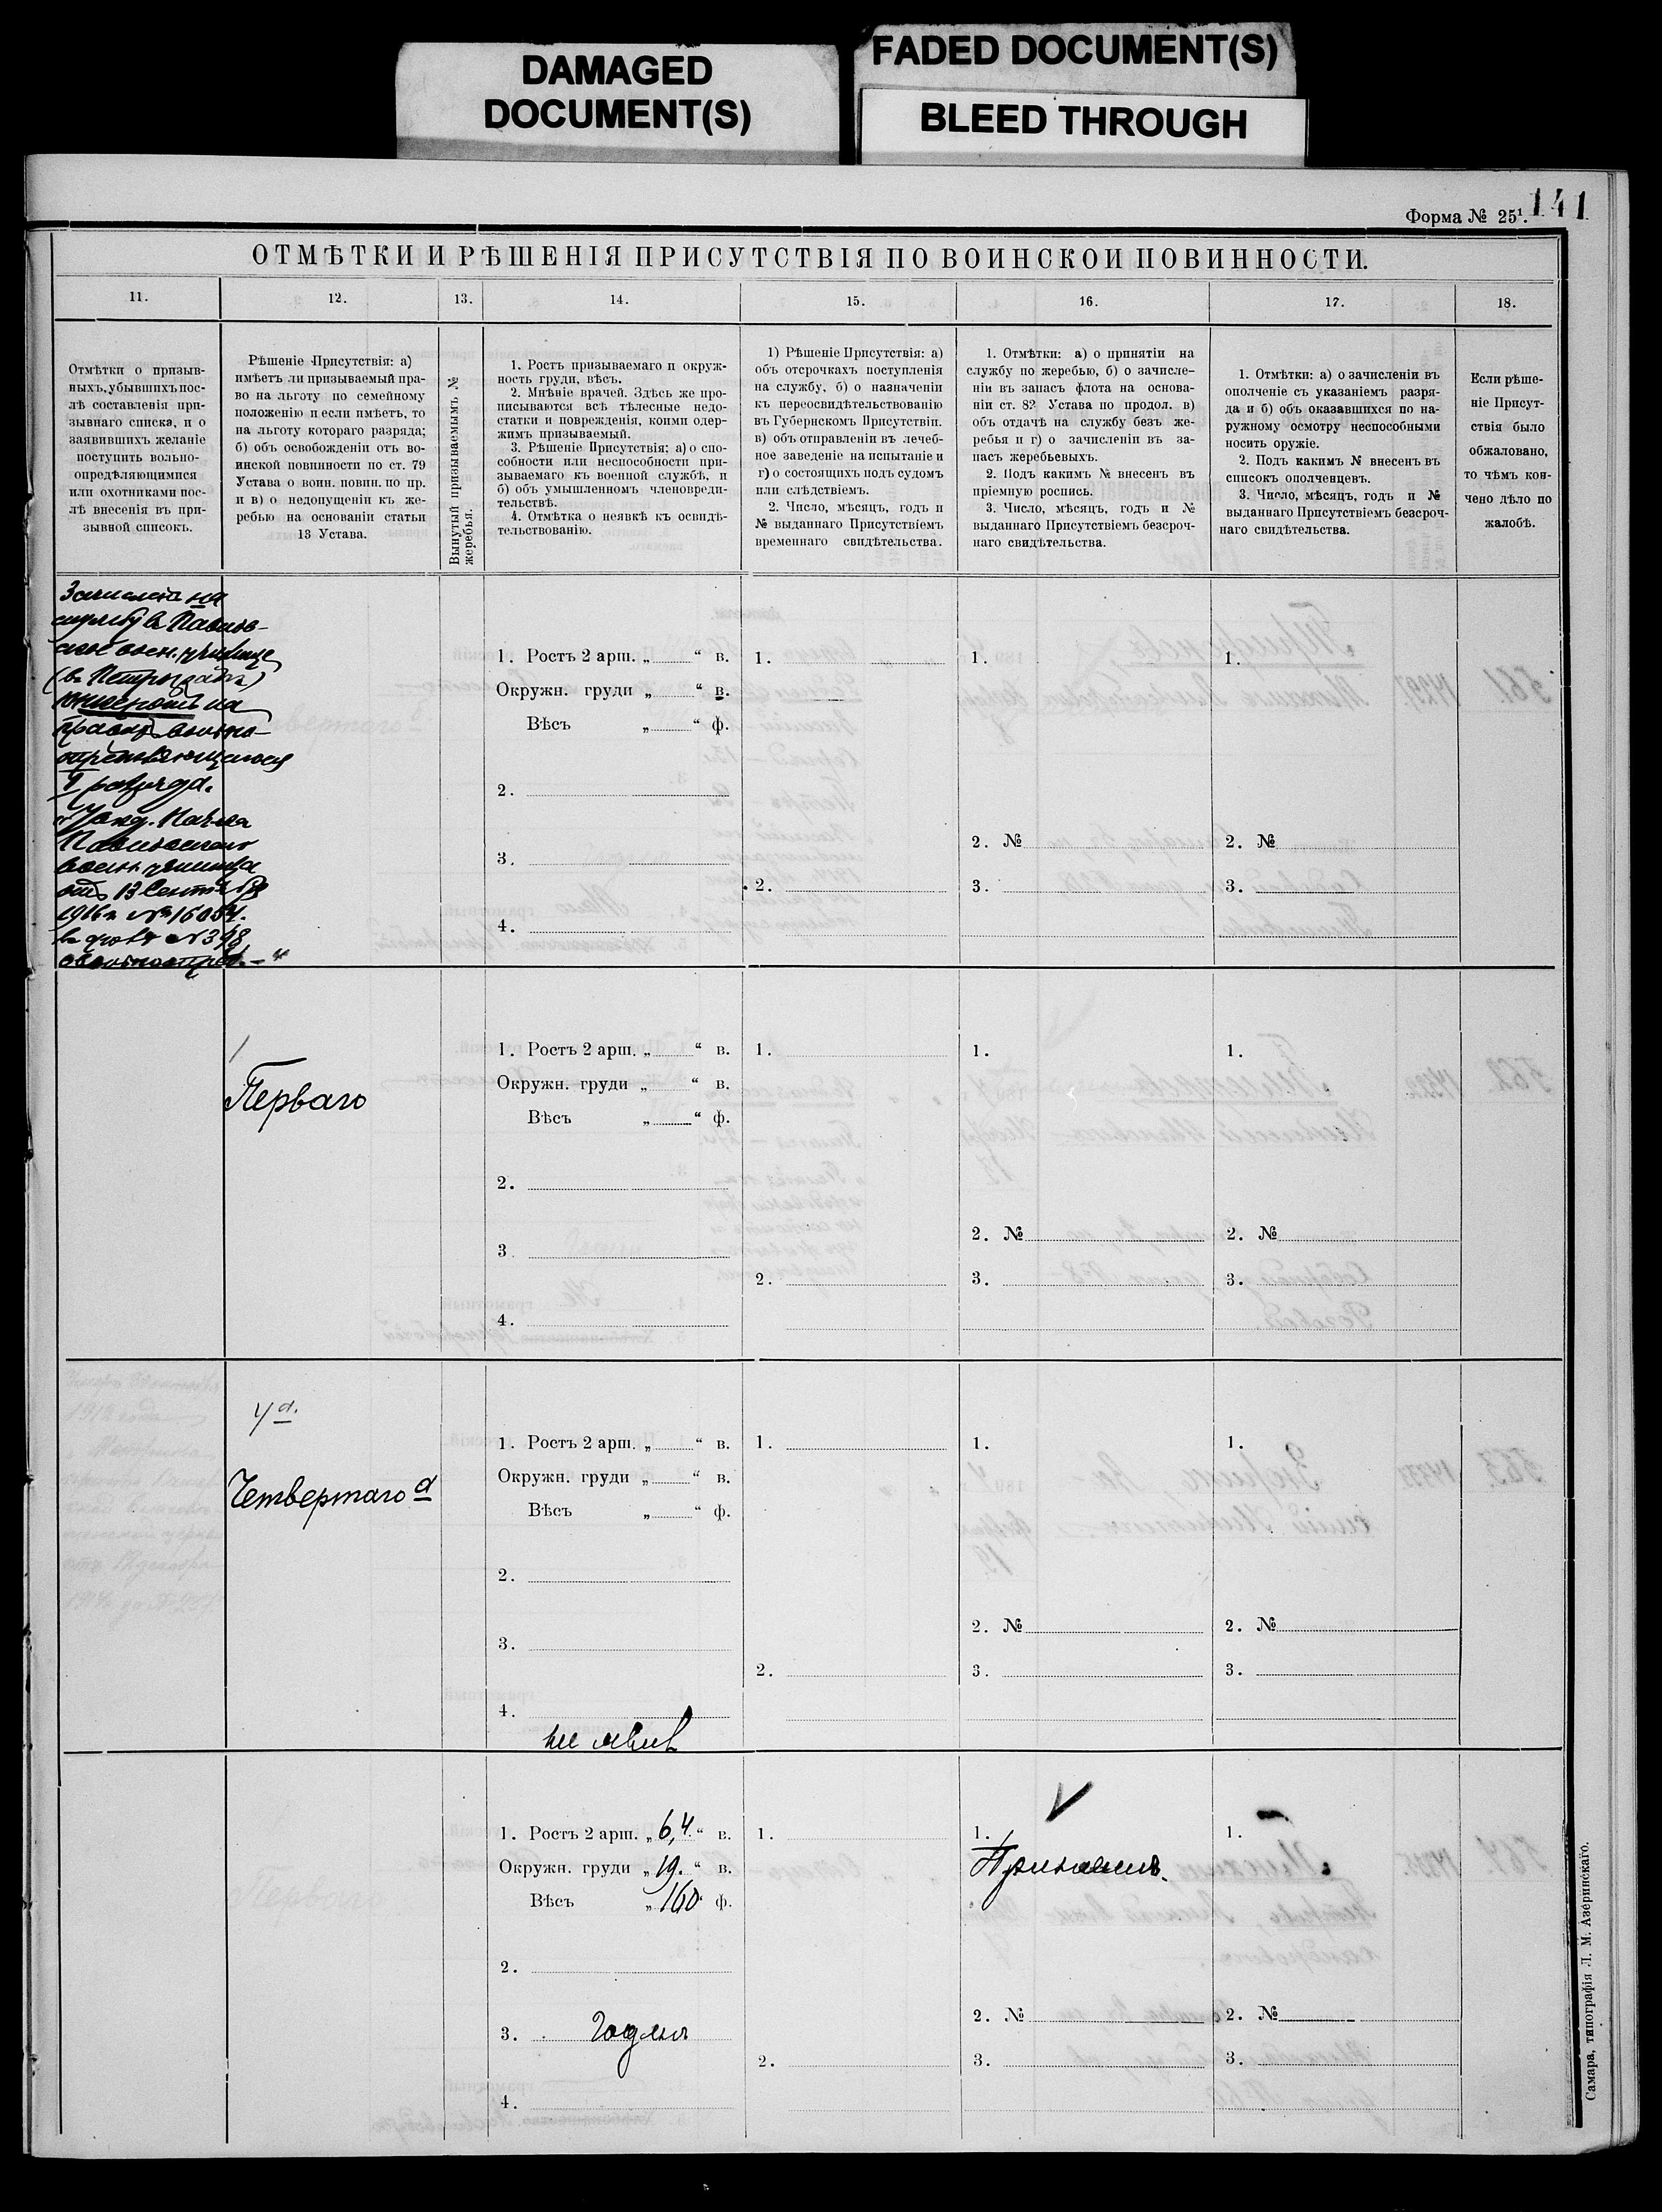 DAMAGED
DOCUMENT(S)
FADED DOCUMENT(S)
BLEED THROUGH
Форма № 25¹.
141
ОТМѢТКИ И РѢШЕНІЯ ПРИСУТСТВІЯ ПО ВОИНСКОИ ПОВИННОСТИ.
11.
12.
13.
14.
15.
16.
17.
18.
Отмѣтки о призыв-
ныхъ, убывшихъ пос-
лѣ составленія при-
зывнаго списка, и о
заявившихъ желаніе
поступить вольно-
опредѣляющимися
или охотниками пос-
лѣ внесенія въ при-
зывной списокъ.
Рѣшеніе Присутствія: а)
имѣетъ ли призываемый пра-
во на льготу по семейному
положенію и если имѣетъ, то
на льготу котораго разряда;
б) объ освобожденіи отъ во-
инской повинности по ст. 79
Устава о воин. повин. по пр.
и в) о недопущеніи къ же-
ребью на основаніи статьи
13 Устава.
Вынутый призываемымъ №
жеребья.
1. Ростъ призываемаго и окруж-
ность груди, вѣсъ.
2. Мнѣніе врачей. Здѣсь же про-
писываются всѣ тѣлесные недо-
статки и поврежденія, коими одер-
жимъ призываемый.
3. Рѣшеніе Присутствія: а) о спо-
собности или неспособности при-
зываемаго къ военной службѣ, и
б) объ умышленномъ членовреди-
тельствѣ.
4. Отмѣтка о неявкѣ къ освидѣ-
тельствованію.
1) Рѣшеніе Присутствія: а)
объ отсрочкахъ поступленія
на службу, б) о назначеніи
къ переосвидѣтельствованію
въ Губернскомъ Присутствіи.
в) объ отправленіи въ лечеб-
ное заведеніе на испытаніе и
г) о состоящихъ подъ судомъ
или слѣдствіемъ.
2. Число, мѣсяцъ, годъ и
№ выданнаго Присутствіемъ
временнаго свидѣтельства.
1. Отмѣтки: а) о принятіи на
службу по жеребью, б) о зачисле-
ніи въ запасъ флота на основа-
ніи ст. 82 Устава по продол. в)
объ отдачѣ на службу безъ же-
ребья и г) о зачисленіи въ за-
пасъ жеребьевыхъ.
2. Подъ какимъ № внесенъ въ
пріемную роспись.
3. Число, мѣсяцъ, годъ и №
выданнаго Присутствіемъ безсроч-
наго свидѣтельства.
1. Отмѣтки: а) о зачисленіи въ
ополченіе съ указаніемъ разря-
да и б) объ оказавшихся по на-
ружному осмотру неспособными
носить оружіе.
2. Подъ какимъ № внесенъ въ
списокъ ополченцевъ.
3. Число, мѣсяцъ, годъ и №
выданнаго Присутствіемъ безсроч-
наго свидѣтельства.
Если рѣше-
ніе Присут-
ствія было
обжаловано,
то чѣмъ кон-
чено дѣло по
жалобѣ.
на
службу въ Павлов-
ское воен. училище
(въ Петроградѣ)
юнкеромъ на
правахъ вольно-
опредѣляющагося
I разряда.
Павловскаго
воен. училища
отъ 13 Сентября
1916 г. № 16054.
№ 398
1. Ростъ 2 арш. „ “ в.
Окружн. груди „ “ в.
Вѣсъ „ “ ф.
2.
3.
4.
1.
2.
1.
2. №
3.
1.
2. №
3.
Перваго
1. Ростъ 2 арш. „ “ в.
Окружн. груди „ “ в.
Вѣсъ „ “ ф.
2.
3
4.
1.
2.
1.
2. №
3.
1.
2. №
3.
4 а.
Четвертаго а
1. Ростъ 2 арш. „ “ в.
Окружн. груди „ “ в.
Вѣсъ „ “ ф.
2.
3.
4.
не явил
1.
2.
1.
2. №
3.
1.
2. №
3.
1. Ростъ 2 арш. „ 6,4. “ в.
Окружн. груди „ 19. “ в.
Вѣсъ „ 160 ф.
2.
3. Годенъ
4.
1.
2.
1.
Принятъ.
2. №
3.
1.
2. №
3.
Самара, типографія Л. М. Азеринскаго.